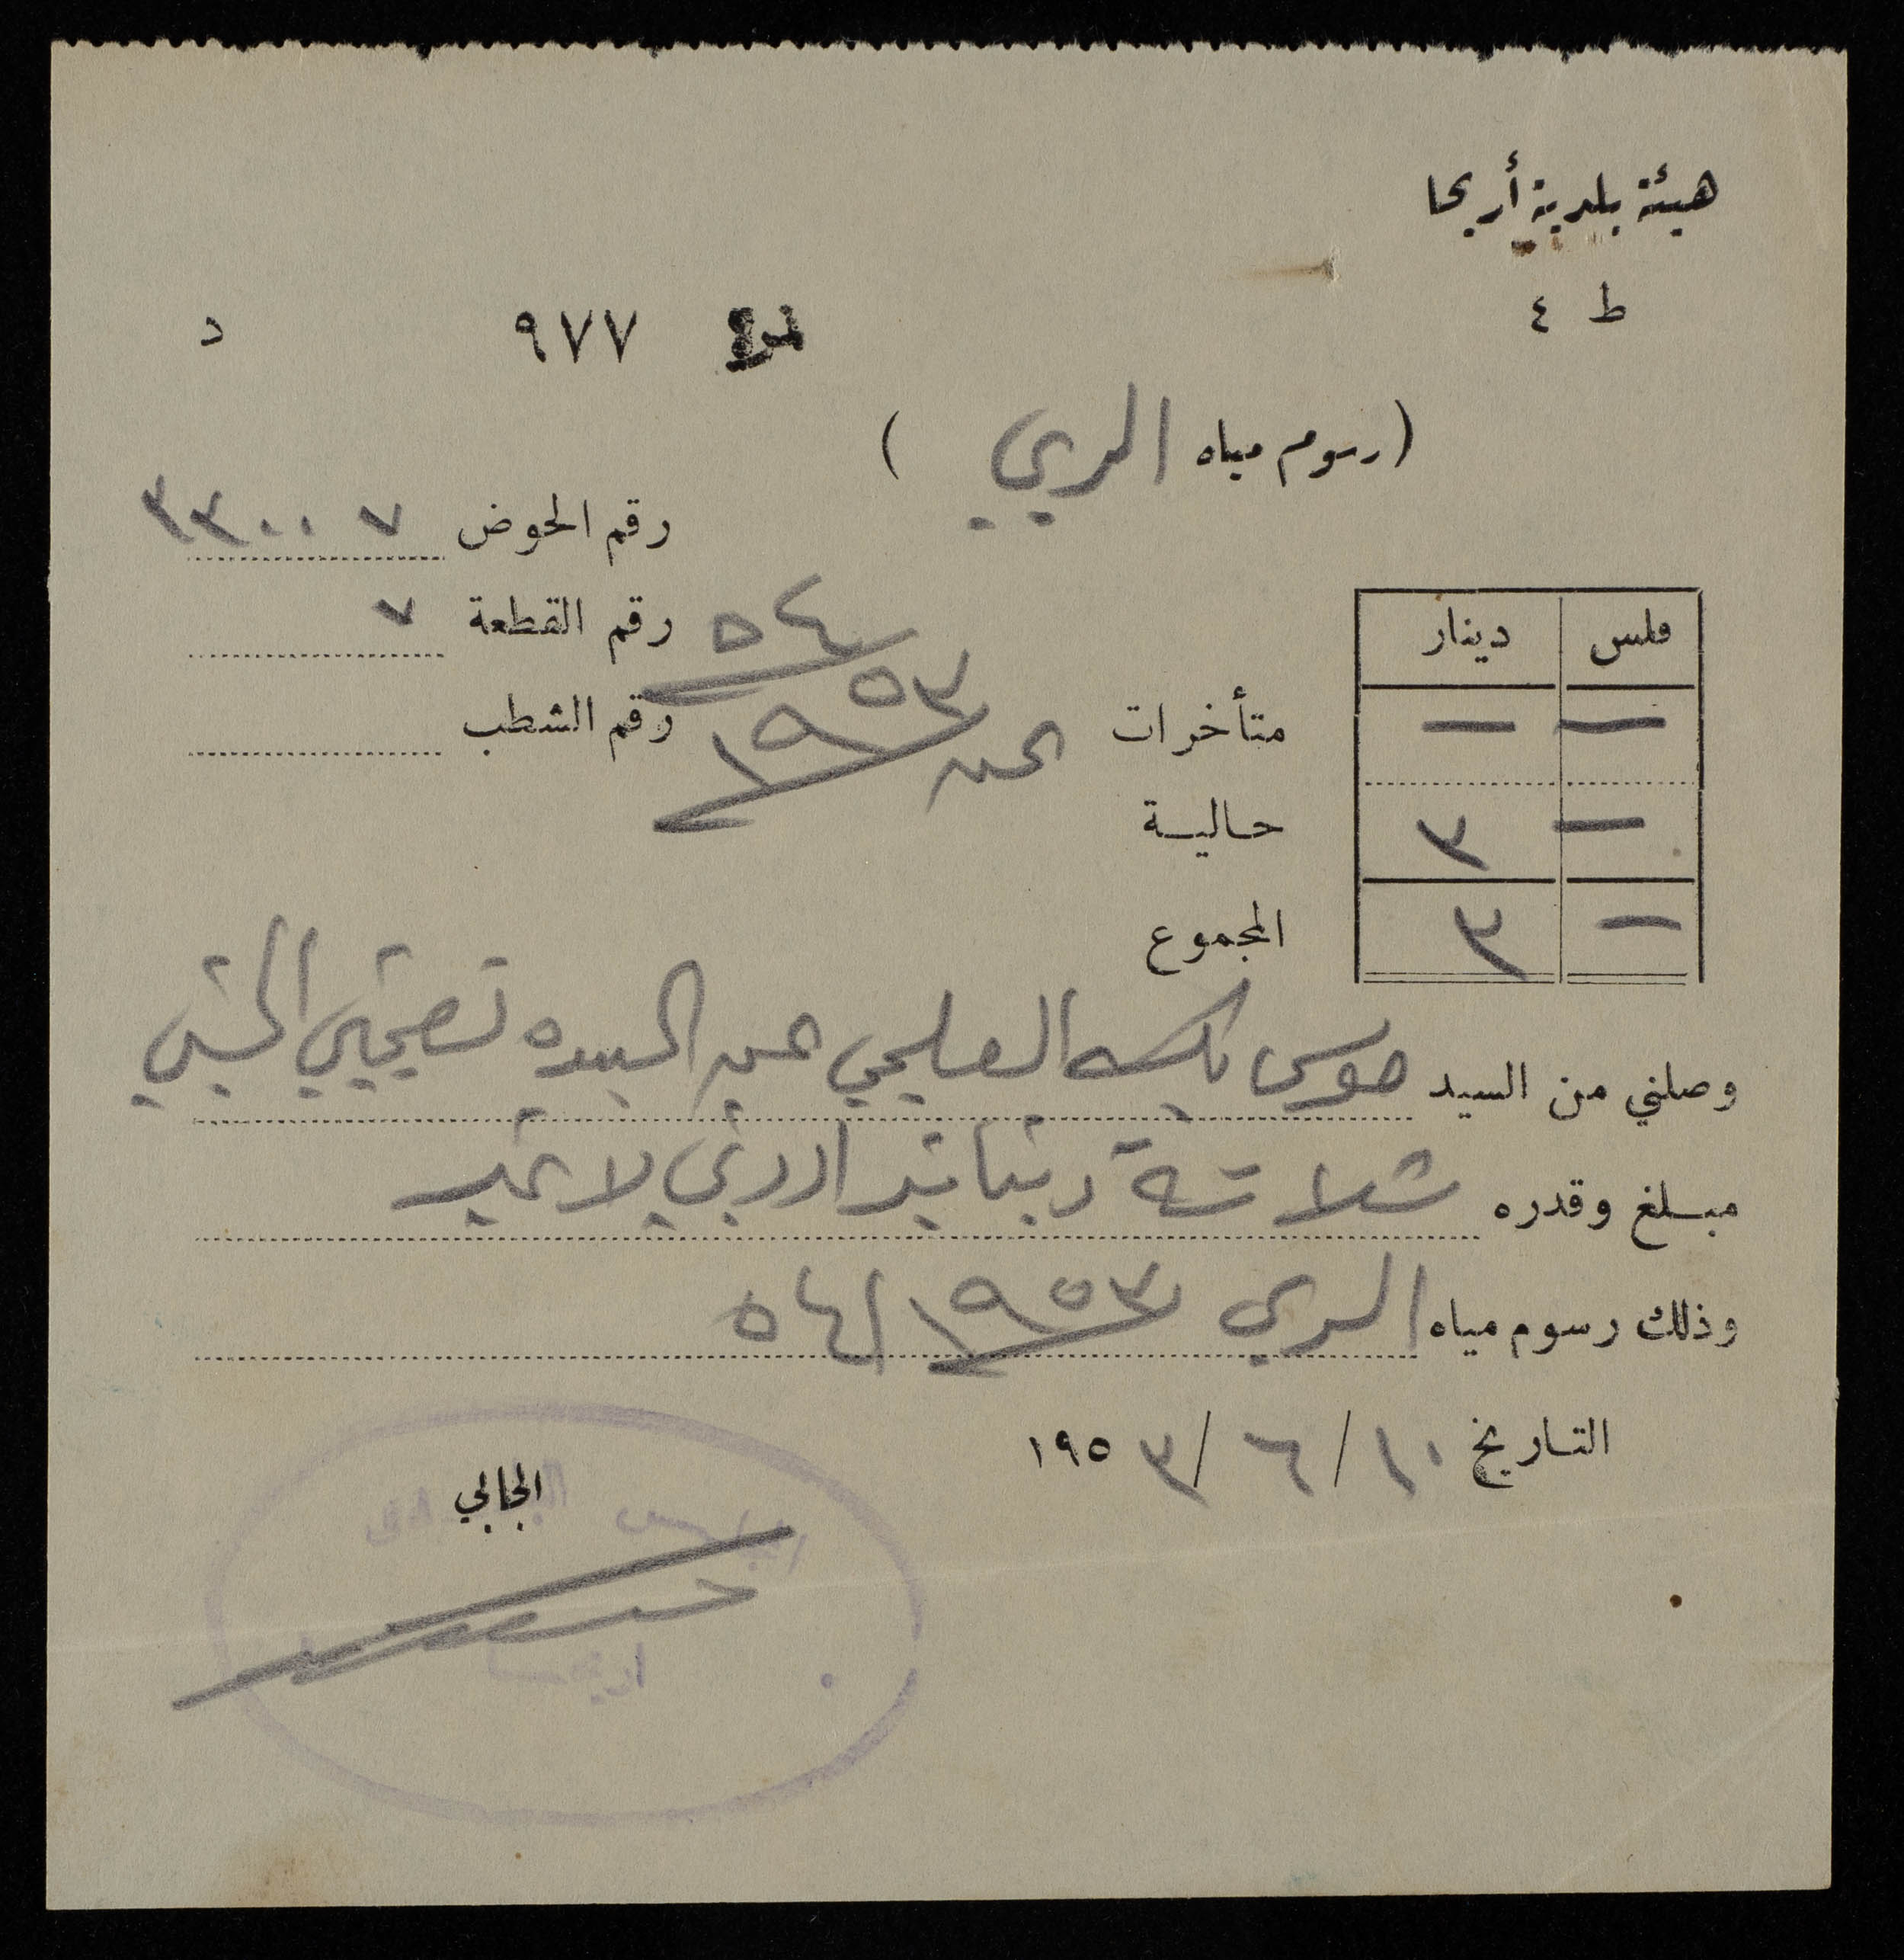 هيئة بلدية أريحا
ط ٤
نمرة ٩٧٧ د
(رسوم مياه الري)
رقم الحوض ٧ ٣٣٠٠٠
رقم القطعة ٧
رقم الشطب
فلس دينار
متأخرات — —
عن ١٩٥٣ / ٥٤
حالية — ٣
المجموع — ٣
وصلني من السيد موسى بك العلمي عن السيده
مبلغ وقدره ثلاثة دنانير اردني لا غير
وذلك رسوم مياه الري ١٩٥٣ / ٥٤
التاريخ ١٠ / ٦ / ١٩٥٣
الجابي